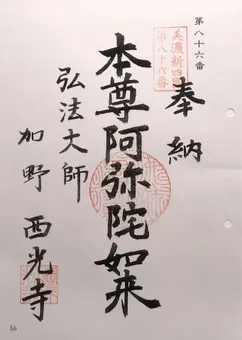 第八十六番
奉納
美濃新四国
第八十六番
本尊阿弥陀如来
弘法大師
加野 西光寺
86